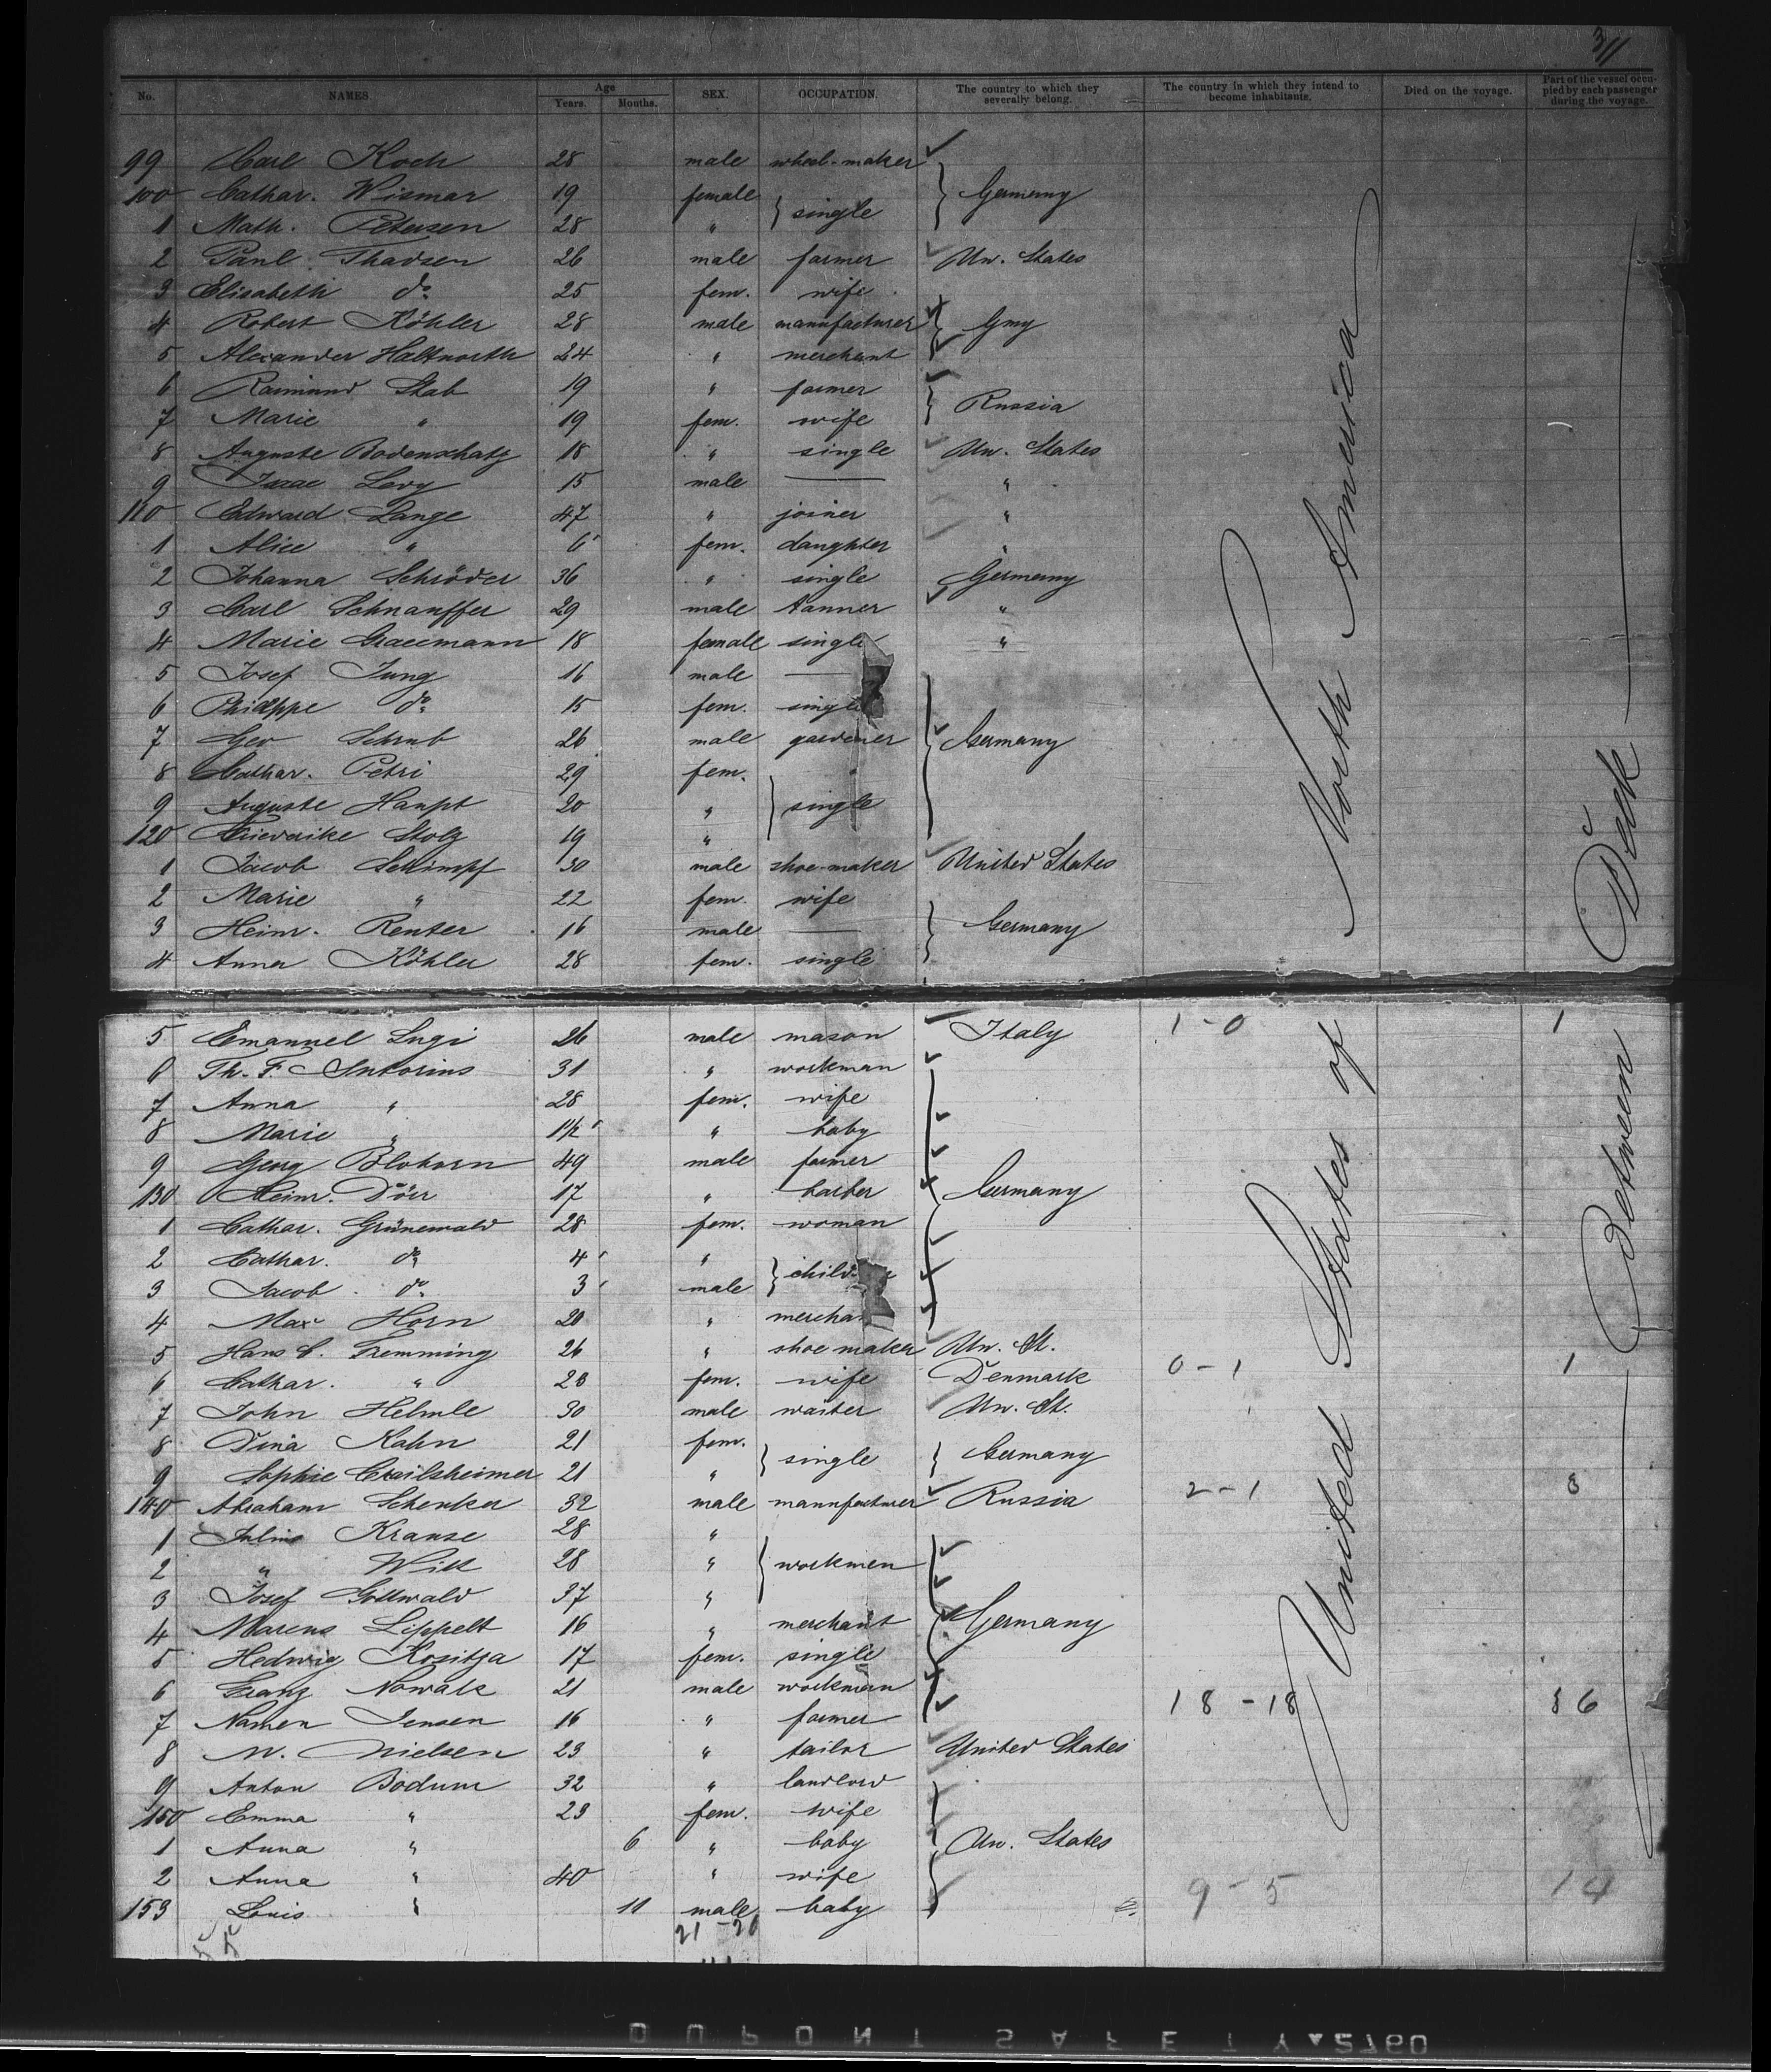 311
No. NAMES Age Years. Months. SEX. OCCUPATION. The country to which they severally belong. The country in which they intend to become inhabitants. Died on the voyage. Part of the vessel occupied by each passenger during the voyage.
99 Carl Koch 28 male wheel-maker
100 Cathar. Wismar 19 female } single } Germany
1 Math. Petersen 28 "
2 Paul Thadsen 26 male farmer Un. States
3 Elisabeth do 25 fem. wife
4 Robert Köhler 28 male manufacturer } Gmy
5 Alexander Haltnorth 24 " merchant
6 Raimund Stab 19 " farmer } Russia
7 Marie " 19 fem. wife
8 Auguste Bodenschatz 18 " single Un. States
9 Isaac Levy 15 male — "
110 Edward Lange 47 " joiner "
1 Alice " 6 fem. daughter "
2 Johanna Schröder 36 " single Germany
3 Carl Schnauffer 29 male tanner "
4 Marie 18 female single "
5 Josef Jung 16 male —
6 Philippe do 15 fem. single
7 Geo Schrub 26 male gardener } Germany
8 Cathar. Petri 29 fem.
9 Auguste Haupt 20 " } single
120 Friederike Stolz 19 "
1 Jacob Schimpf 30 male shoe-maker United States
2 Marie " 22 fem. wife
3 Heinr. Renter 16 male — } Germany
4 Anna Köhler 28 fem. single
5 Emanuel Lugi 26 male mason Italy 1-0 1
6 Th. F. 31 " workman
7 Anna " 28 fem. wife
8 Marie " 1½ " baby
9 Georg Blohorn 49 male farmer
130 Heinr. Dörr 17 " barber } Germany
1 Cathar. Grünewald 28 fem. woman
2 Cathar. do 4 "
3 Jacob do 3 male }
4 Max Horn 20 "
5 Hans C. Fremming 26 " shoe maker Un. St.
6 Cathar. " 23 fem. wife Denmark 0-1 1
7 John Helmle 30 male waiter Un. St.
8 Dina Kahn 21 fem. } single } Germany
9 Sophie Crailsheimer 21 "
140 Abraham Schenker 32 male manufacturer Russia 2-1 3
1 Julius Krause 28 "
2 " Witt 28 " } workmen
3 Josef Gottwald 37 "
4 Marcus Lippelt 16 " merchant } Germany
5 Hedwig Kositza 17 fem. single
6 Franz Nowak 21 male workman 18-18 36
7 Namen Jensen 16 " farmer
8 N. Nielsen 23 " tailor United States
9 Anton Bodum 32 " landlord
150 Emma " 23 fem. wife
1 Anna " 6 " baby } Un. States
2 Anna " 40 " wife 9-5 14
153 Louis " 11 male baby
21-20
United States of North America
Between Deck
DUPONT SAFETY 2760